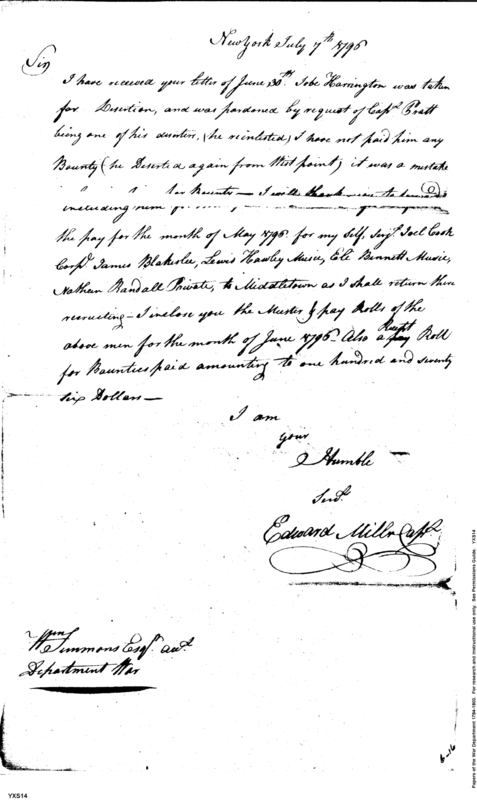 New York July 7th 1796
Sir
I have received your letter of June 30th. Tobe Harrington was taken
for Desertion, and was pardoned by request of Capt. Pratt
being one of his deserters, (he reinlisted) I have not paid him any
Bounty (he Deserted again from West point) it was a mistake
including him
the pay for the month of May 1796 for my Self, Serjt. Joel Cook
Corpl. James Blakeslee, Lewis Hawley Music, Eli Bennett Music,
Nathan Randall Private, to Middletown as I shall return there
recruiting – I inclose you the Muster & pay Rolls of the
above men for the month of June 1796 – Also a pay Receipt Roll
for Bounties paid amounting to one hundred and seventy
six Dollars –
I am
your
Humble
Servt.
Edward Miller Capt.
Wm Simmons Esqr. acct.
Department War
6-16
YXS14
Papers of the War Department 1784-1800. For research and instructional use only. See Permissions Guide. YXS14